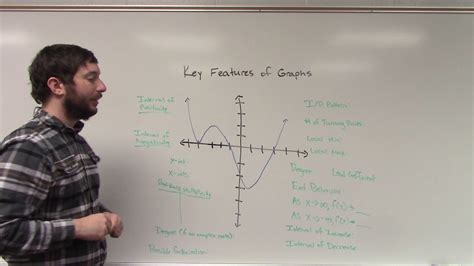 Key Features of Graphs
Interval of
Positivity
Interval of
Negativity
X-int:
X-ints:
Degree (if no complex roots):
Possible Factorization:
I/D Pattern:
# of Turning Points:
Local Min:
Local Max:
Degree: Lead Coefficient
End Behavior:
As X→∞, f(x)→ __
As X→-∞, f(x)→ __
Interval of Increase:
Interval of Decrease: